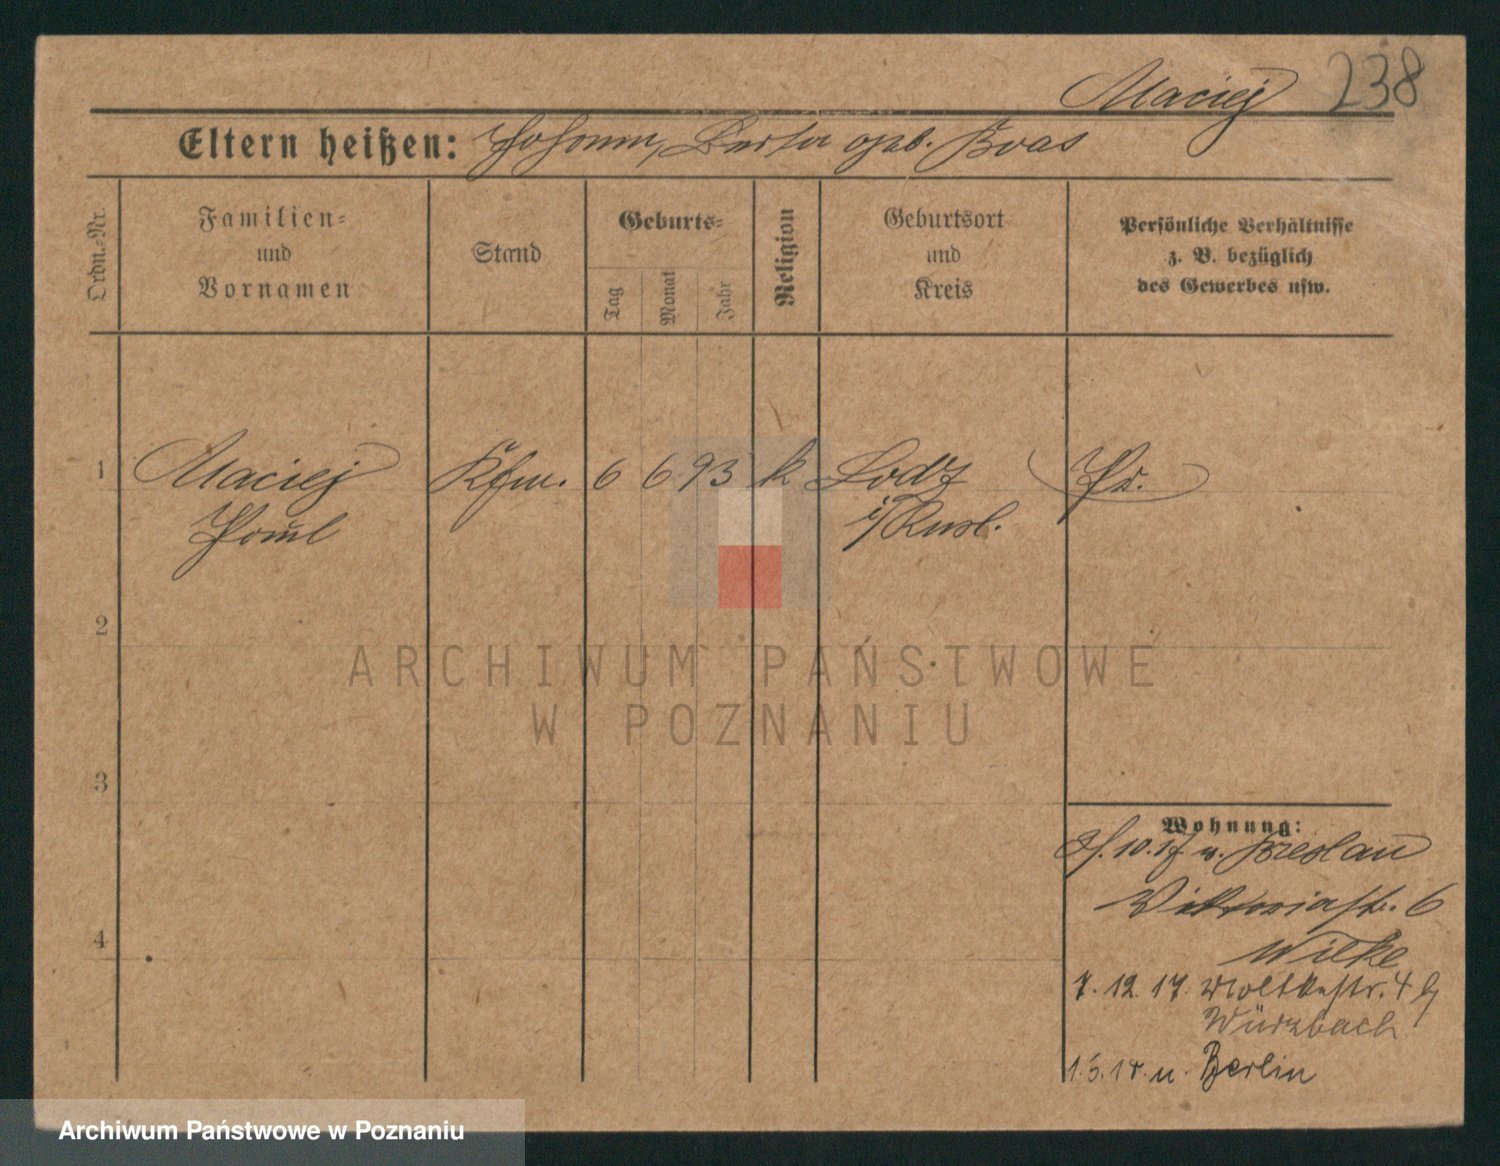 Maciej 238
Eltern heißen: Johann, Berta geb. Boas
Ordn.-Nr.
Familien-
und
Vornamen
Stand
Geburts-
Tag
Monat
Jahr
Religion
Geburtsort
und
Kreis
Persönliche Verhältnisse
z. B. bezüglich
des Gewerbes usw.
1 Maciej Kfm. 6 6 93 k Lodz
i/Russl.
2
3
4
Wohnung:
10.17 v. Breslau
Viktoriastr. 6
Wilke
7.12.17. Moltkestr. 4
Würzbach
Berlin
ARCHIWUM PAŃSTWOWE
W POZNANIU
Archiwum Państwowe w Poznaniu